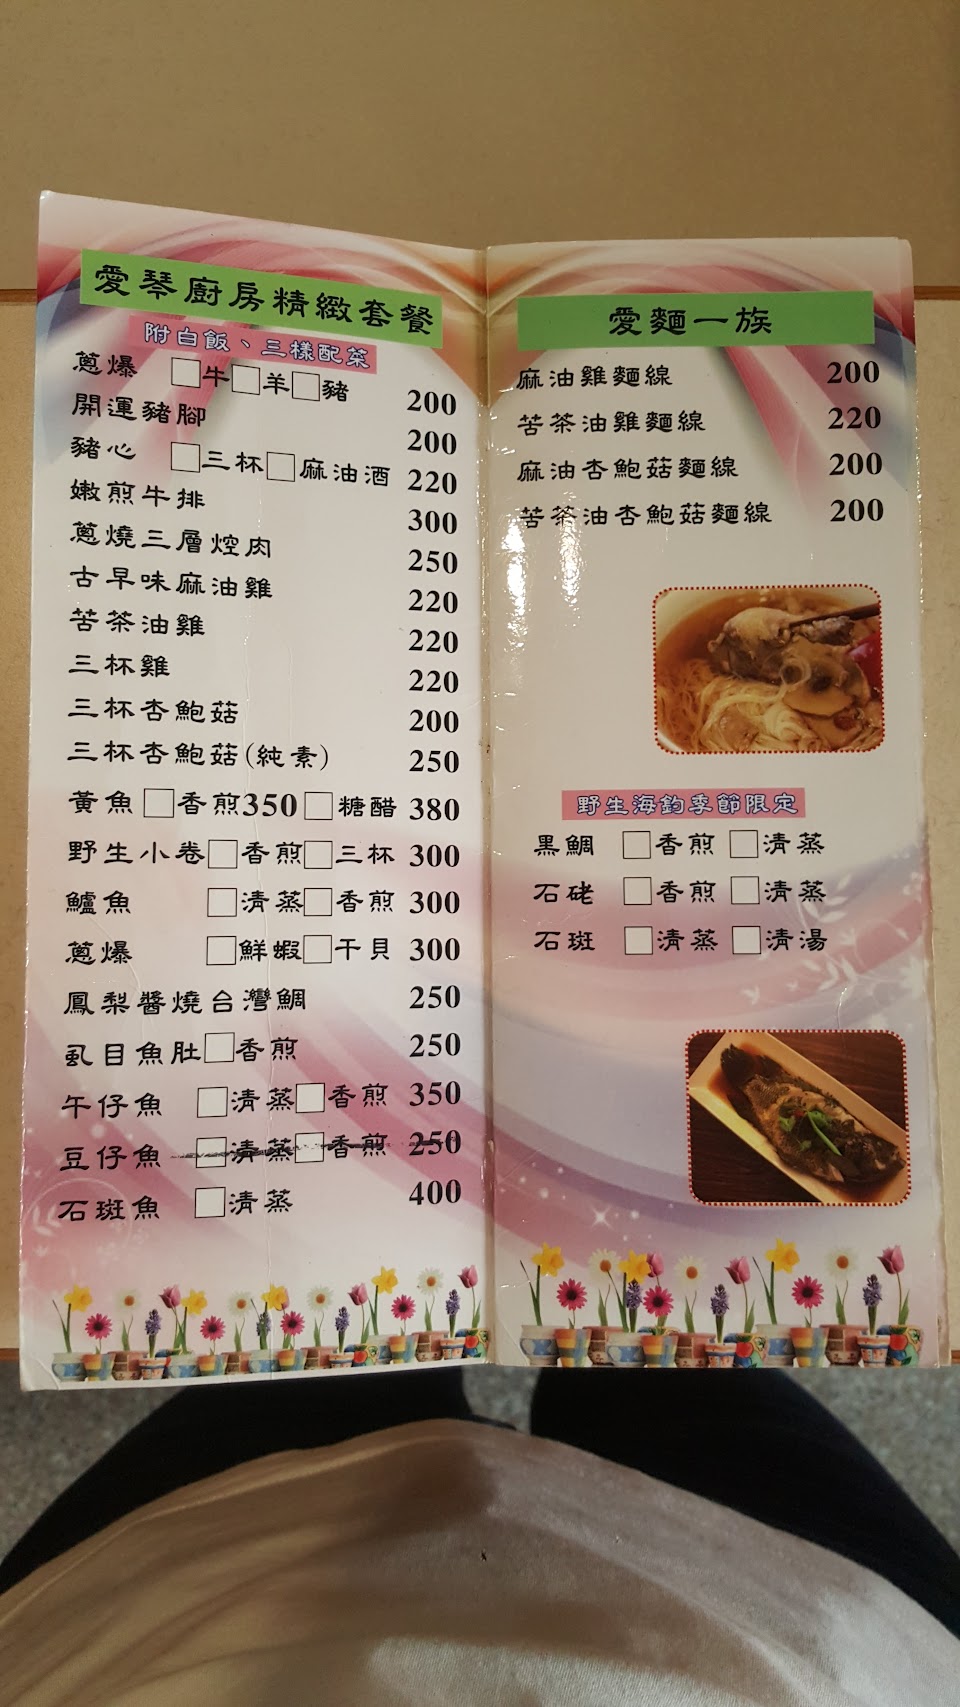 愛琴廚房精緻套餐
附白飯、三樣配菜
蔥爆 □牛□羊□豬 200
開運豬腳 200
豬心 □三杯□麻油酒 220
嫩煎牛排 300
蔥燒三層焢肉 250
古早味麻油雞 220
苦茶油雞 220
三杯雞 220
三杯杏鮑菇 200
三杯杏鮑菇(純素) 250
黃魚 □香煎350 □糖醋 380
野生小卷□香煎□三杯 300
鱸魚 □清蒸□香煎 300
蔥爆 □鮮蝦□干貝 300
鳳梨醬燒台灣鯛 250
虱目魚肚□香煎 250
午仔魚 □清蒸□香煎 350
豆仔魚 □清蒸□香煎 250
石斑魚 □清蒸 400
愛麵一族
麻油雞麵線 200
苦茶油雞麵線 220
麻油杏鮑菇麵線 200
苦茶油杏鮑菇麵線 200
野生海釣季節限定
黑鯛 □香煎 □清蒸
石硓 □香煎 □清蒸
石斑 □清蒸 □清湯